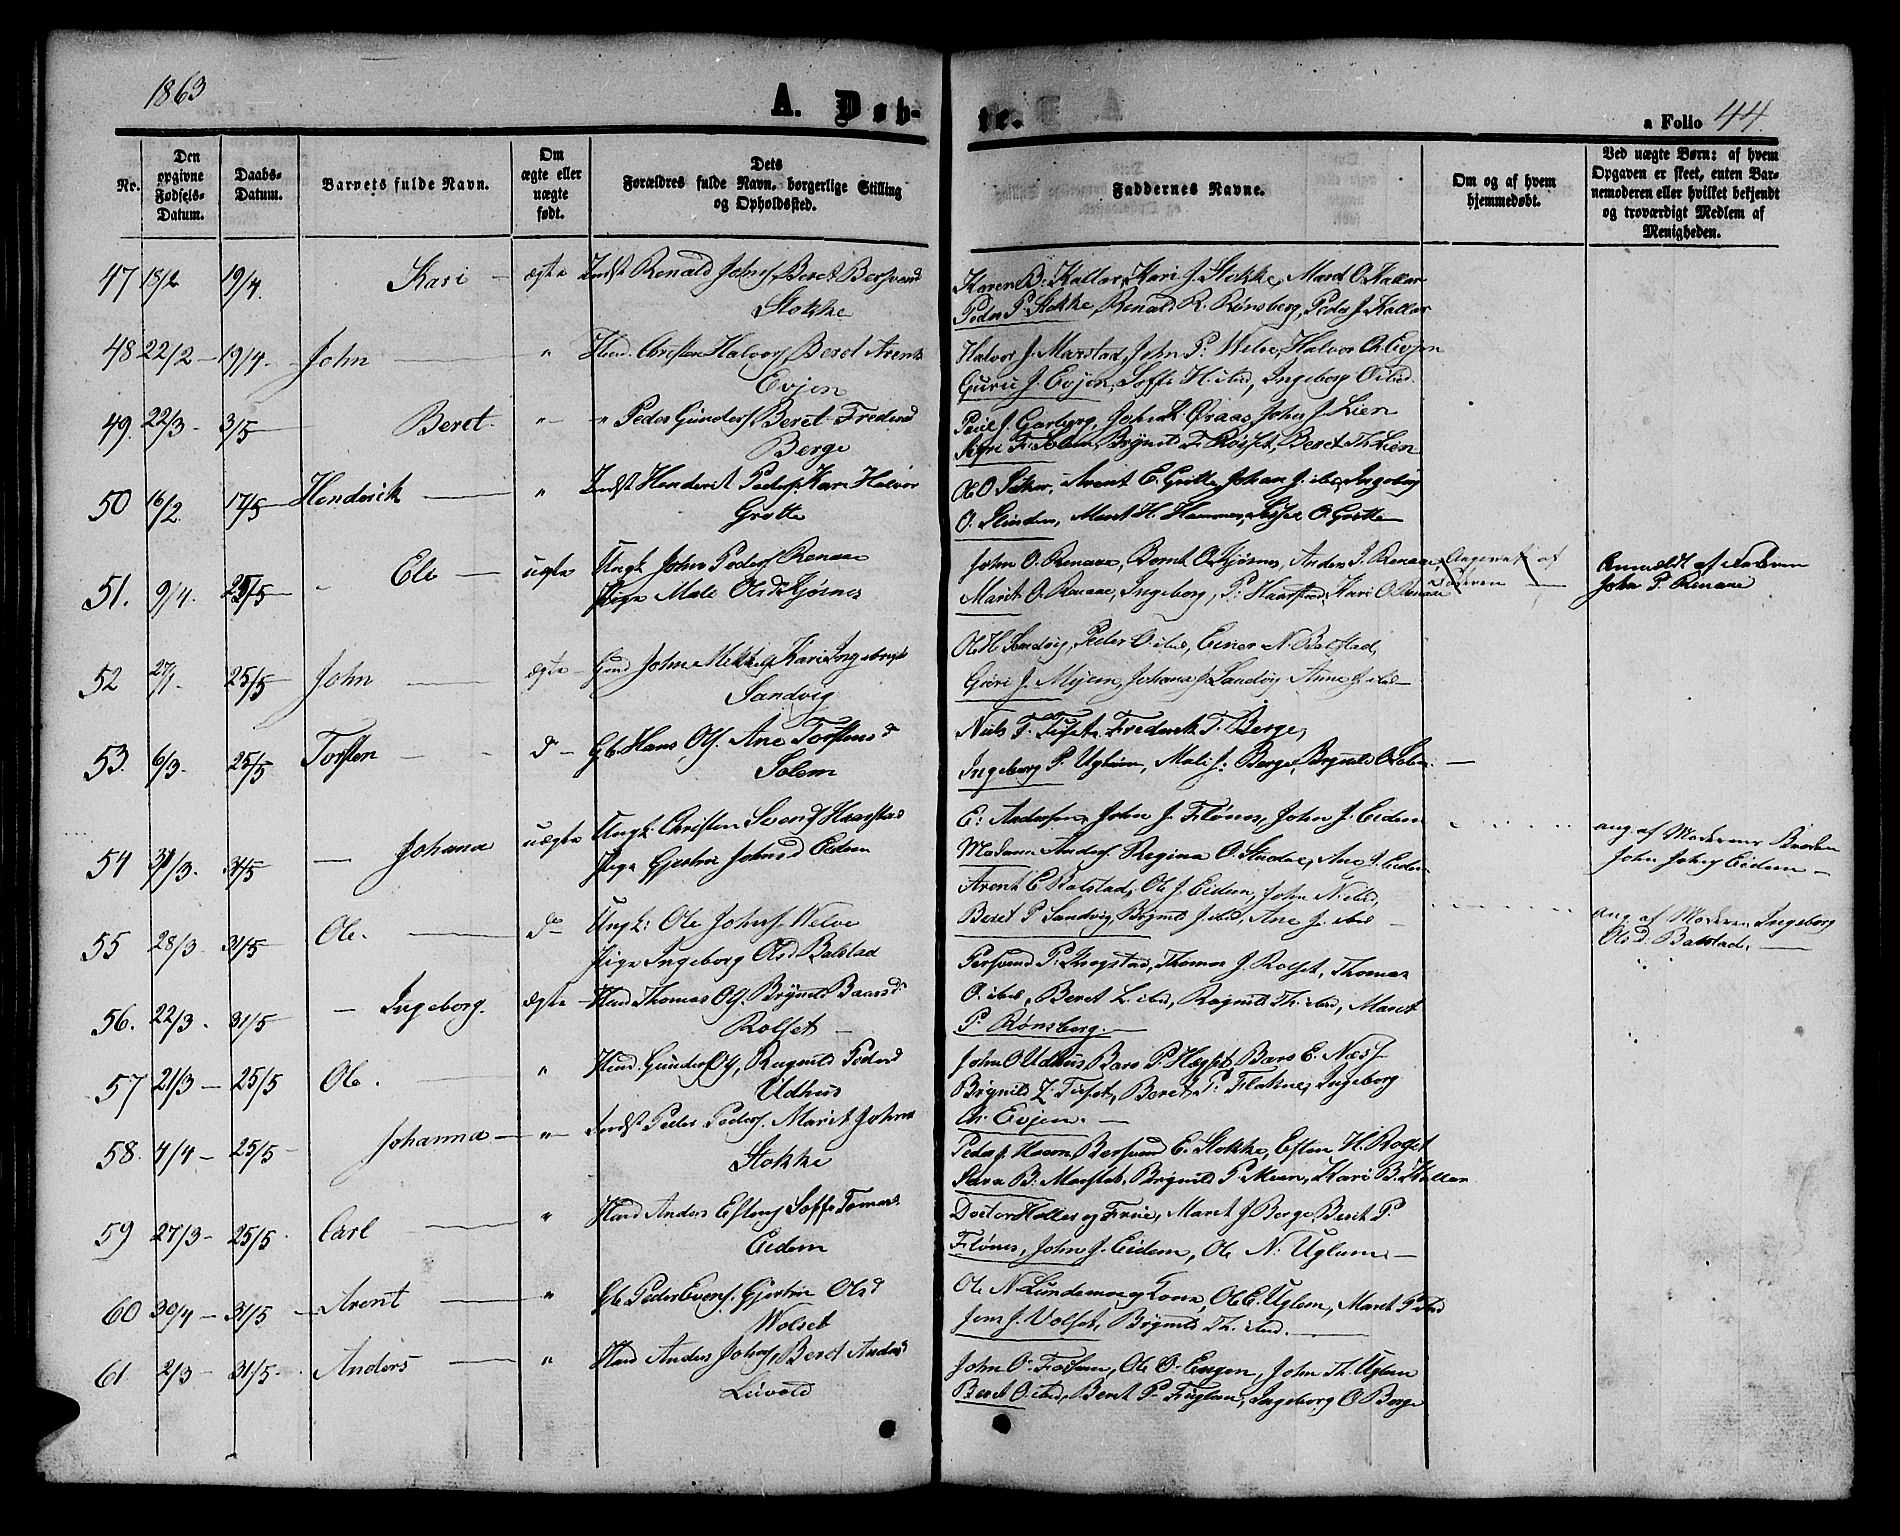 1863
A. Døb-
te.
a Folio 44.
Nr.
Den opgivne Fødsels-Datum.
Daabs-Datum.
Barnets fulde Navn.
Om ægte eller uægte født.
Dets Forældres fulde Navn, borgerlige Stilling og Opholdssted.
Faddernes Navne.
Om og af hvem hjemmedøbt.
Ved uægte Børn: af hvem Opgaven er skeet, enten Barnemoderen eller hvilket bekjendt og troværdigt Medlem af Menigheden.
47 18/2 19/4. Kari — ægte Indst Renald Johns, Beret Bersvend
Stokke
Karen B. Kallar, Kari J. Stokke, Marit O. Kallar
Peder P. Stokke, Renald R. Rønsberg, Peder J. Kallar
48 22/2 — 19/4. John — " Huud. Christen Halvors, Beret Arents
Evjen
Halvor J. Marstad, John P. Welve, Halvor Ch. Evjen
Guru J. Evjen, Soffi H. ibd, Ingeborg O ibd.
49. 22/3 - 3/5 Beret. " " Peder Gunders, Beret Fredrikd
Berge
Paul J. Garberg, John K. Øraas, John J. Lien
F. Solem, Brynild F. Røsset, Beret Th. Lien
50 16/2 17/5 Hendrick — " Indst Henderik Peders. Kari Halvor
Grøtte
Ole O. Arent E. Grøtte, Johan J. ibd, Ingebor
O. Slinden, Marit H. Hammer, Sissel O. Grøtte
51. 9/4. 25/5 Eli — uægte Ungk John Peders Renaae
Pige Mali Olsd Kjøsnes
John O. Renaae, Bernt O. Kjøsnes, Anders J. Renaae,
Marit O. Renaae, Ingeborg P. Haarstad, Kari O. Renaae
Anmeldt af Faderen
John P. Renaae
52 27/1. 25/5 John — ægte Gmd John Mikkels Kari Ingebrigts
Sandvig
Ole H. Sandvig, Peder O ibd, Einer N. Balstad,
Guri J. Mijeen, Johana J. Sandvig Anne J. ibd —
53. 6/3. 25/5 Torsten — d — Gb. Hans Ols. Ane Torstensd
Solem
Niels F. Tufset, Frederik T. Berge,
Ingeborg P. Uglem, Mali J. Berge, Brynild O. Solem. —
54 31/3. 31/5 — Johana uægte Ungk: Christen Svends Haarstad
Pige Gjertru Johnsd Eidem
E: Andersen, John J. Flønes, John J. Eidem
Madame Anders. Regina O. Stude, Ane J. Eidem
ang af Moderens Broder
John Johns Eidem —
55 28/3. 31/5 Ole. — do Ungk: Ole Johns. Welve
Pige Ingeborg Olsd Balstad
Arent E. Balstad, Ole J. Eidem, John N. ibd,
Beret P. Sandvig, Brynild J. ibd, Ane J. ibd —
ang af Moderen Ingeborg
Olsd. Balstad. —
56. 22/3. 31/5 — Ingeborg. ægte — Huud Thomas Ols. Brynild Baarsd.
Rolset —
Bersvend P. Krogstad, Thomas J. Rolset, Thomas
O. ibd, Beret L. ibd, Ragnild Th. ibd, Marit
P. Rønsberg. —
57 21/3 — 25/5 Ole. — " Huud. Gunder Ols, Ragnild Pedersd
Udhus
John O. Udhus, Baro P. Hægset, Baro E. Næss
Brynild Z Tufset, Beret P. Flakne, Ingeborg
Ch. Evjen. —
58. 4/4 — 25/5 - Johanna — " — Indst Peder Peders. Marit Johns
Stokke
Peder J. Haven, Bersvend E. Stokke, Esten H. Rolset
Sara B. Marstad, Brynild P. Meien, Kari B. Kallar
59 27/3 - 25/5. Carl — " Huud Anders Estens, Soffi Tomas.
Eidem
Doctor Holler og Frue, Marit J. Berge, Berit P.
Flønes, John J. Eidem, Ole N. Uglem. —
60 30/4 — 31/5 — Arent — " Gb Peder Evens. Gjertru Olsd
Wolset
Ole N. Lundemo og Kona, Ole E. Uglem, Marit P. ibd
Jens J. Volset, Brynild Th. ibd. —
61. 2/3 — 31/5 - Anders — " Huud Anders Johns, Beret Andersd
Leivold
John O. Fossem, Ole O. Engen, John Th. Uglem
Beret O. ibd, Beret P. Fuglem, Ingeborg O. Berge